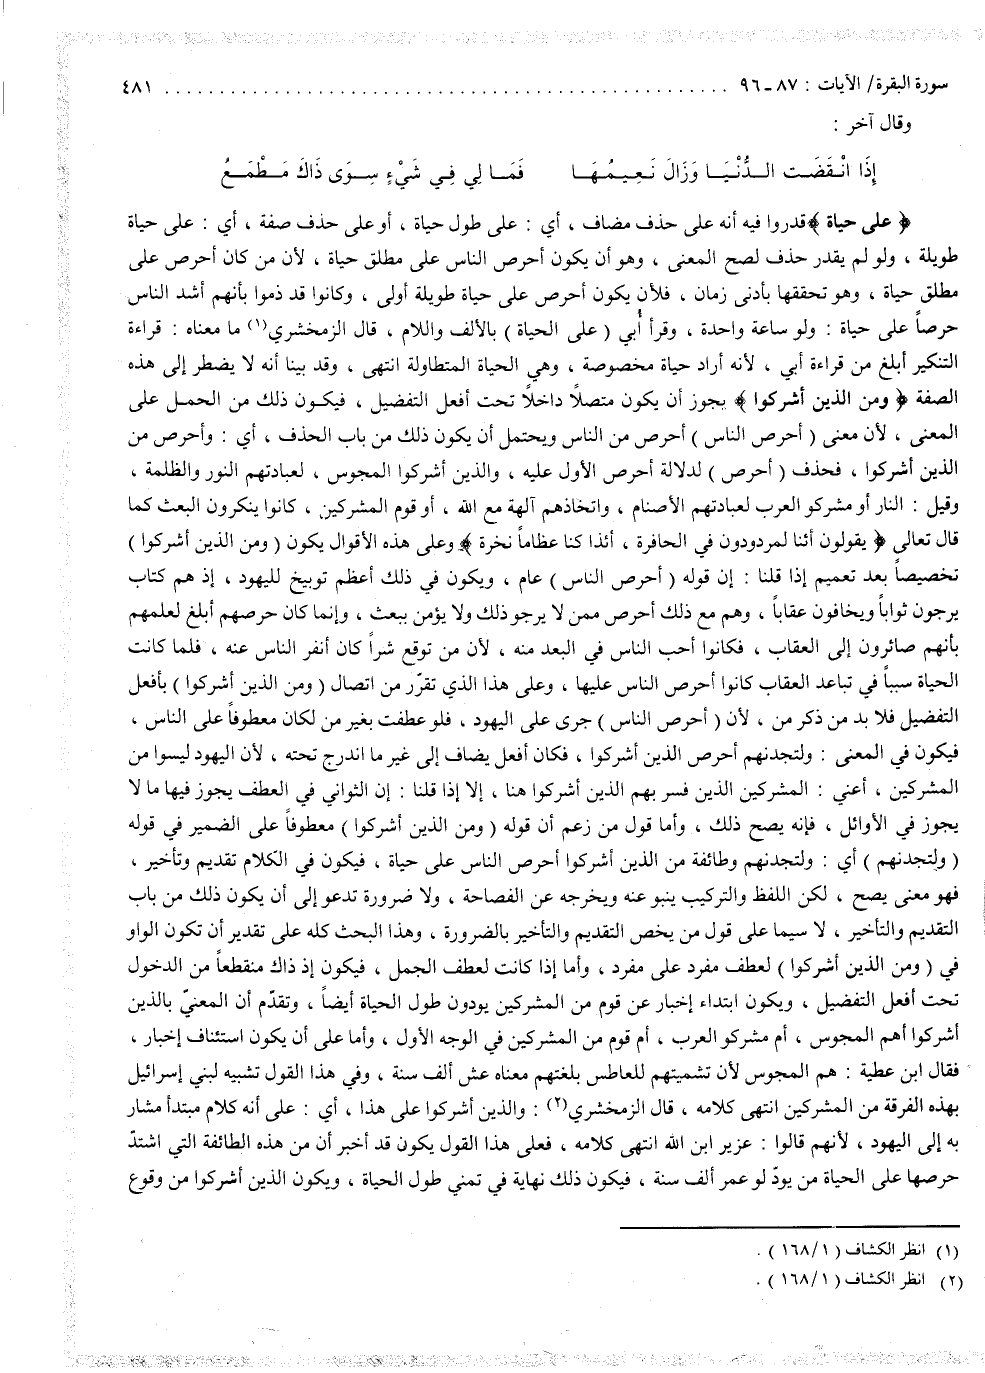 سورة البقرة/ الآيات : ٨٧ ـ ٩٦ ........................................................ ٤٨١
وقال آخر :
إِذَا انْقَضَت الـدُّنْيَـا وَزَالَ نَـعِـيـمُـهَـا فَمَـا لِي فِـي شَيْءٍ سِـوَى ذَاكَ مَـطْمَـعُ
﴿ على حياة ﴾ قدروا فيه أنه على حذف مضاف ، أي : على طول حياة ، أو على حذف صفة ، أي : على حياة
طويلة ، ولو لم يقدر حذف لصح المعنى ، وهو أن يكون أحرص الناس على مطلق حياة ، لأن من كان أحرص على
مطلق حياة ، وهو تحققها بأدنى زمان ، فلأن يكون أحرص على حياة طويلة أولى ، وكانوا قد ذموا بأنهم أشد الناس
حرصاً على حياة : ولو ساعة واحدة ، وقرأ أُبي ( على الحياة ) بالألف واللام ، قال الزمخشري(١) ما معناه : قراءة
التنكير أبلغ من قراءة أبي ، لأنه أراد حياة مخصوصة ، وهي الحياة المتطاولة انتهى ، وقد بينا أنه لا يضطر إلى هذه
الصفة ﴿ ومن الذين أشركوا ﴾ يجوز أن يكون متصلاً داخلاً تحت أفعل التفضيل ، فيكون ذلك من الحمل على
المعنى ، لأن معنى ( أحرص الناس ) أحرص من الناس ويحتمل أن يكون ذلك من باب الحذف ، أي : وأحرص من
الذين أشركوا ، فحذف ( أحرص ) لدلالة أحرص الأول عليه ، والذين أشركوا المجوس ، لعبادتهم النور والظلمة ،
وقيل : النار أو مشركو العرب لعبادتهم الأصنام ، واتخاذهم آلهة مع الله ، أو قوم المشركين ، كانوا ينكرون البعث كما
قال تعالى ﴿ يقولون أئنا لمردودون في الحافرة ، أئذا كنا عظاماً نخرة ﴾ وعلى هذه الأقوال يكون ( ومن الذين أشركوا )
تخصيصاً بعد تعميم إذا قلنا : إن قوله ( أحرص الناس ) عام ، ويكون في ذلك أعظم توبيخ لليهود ، إذ هم كتاب
يرجون ثواباً ويخافون عقاباً ، وهم مع ذلك أحرص ممن لا يرجو ذلك ولا يؤمن ببعث ، وإنما كان حرصهم أبلغ لعلمهم
بأنهم صائرون إلى العقاب ، فكانوا أحب الناس في البعد منه ، لأن من توقع شراً كان أنفر الناس عنه ، فلما كانت
الحياة سبباً في تباعد العقاب كانوا أحرص الناس عليها ، وعلى هذا الذي تقرّر من اتصال ( ومن الذين أشركوا ) بأفعل
التفضيل فلا بد من ذكر من ، لأن ( أحرص الناس ) جرى على اليهود ، فلو عطفت بغير من لكان معطوفاً على الناس ،
فيكون في المعنى : ولتجدنهم أحرص الذين أشركوا ، فكان أفعل يضاف إلى غير ما اندرج تحته ، لأن اليهود ليسوا من
المشركين ، أعني : المشركين الذين فسر بهم الذين أشركوا هنا ، إلا إذا قلنا : إن الثواني في العطف يجوز فيها ما لا
يجوز في الأوائل ، فإنه يصح ذلك ، وأما قول من زعم أن قوله ( ومن الذين أشركوا ) معطوفاً على الضمير في قوله
( ولتجدنهم ) أي : ولتجدنهم وطائفة من الذين أشركوا أحرص الناس على حياة ، فيكون في الكلام تقديم وتأخير ،
فهو معنى يصح ، لكن اللفظ والتركيب ينبو عنه ويخرجه عن الفصاحة ، ولا ضرورة تدعو إلى أن يكون ذلك من باب
التقديم والتأخير ، لا سيما على قول من يخص التقديم والتأخير بالضرورة ، وهذا البحث كله على تقدير أن تكون الواو
في ( ومن الذين أشركوا ) لعطف مفرد على مفرد ، وأما إذا كانت لعطف الجمل ، فيكون إذ ذاك منقطعاً من الدخول
تحت أفعل التفضيل ، ويكون ابتداء إخبار عن قوم من المشركين يودون طول الحياة أيضاً ، وتقدّم أن المعنيّ بالذين
أشركوا أهم المجوس ، أم مشركو العرب ، أم قوم من المشركين في الوجه الأول ، وأما على أن يكون استئناف إخبار ،
فقال ابن عطية : هم المجوس لأن تشميتهم للعاطس بلغتهم معناه عش ألف سنة ، وفي هذا القول تشبيه لبني إسرائيل
بهذه الفرقة من المشركين انتهى كلامه ، قال الزمخشري(٢) : والذين أشركوا على هذا ، أي : على أنه كلام مبتدأ مشار
به إلى اليهود ، لأنهم قالوا : عزير ابن الله انتهى كلامه ، فعلى هذا القول يكون قد أخبر أن من هذه الطائفة التي اشتدّ
حرصها على الحياة من يودّ لو عمر ألف سنة ، فيكون ذلك نهاية في تمني طول الحياة ، ويكون الذين أشركوا من وقوع
(١) انظر الكشاف ( ١٦٨/١ ) .
(٢) انظر الكشاف ( ١٦٨/١ ) .